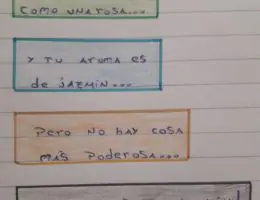 COMO UNA ROSA...
Y TU AROMA ES
de JAZMIN...
Pero NO HAY COSA
MÁS Poderosa...